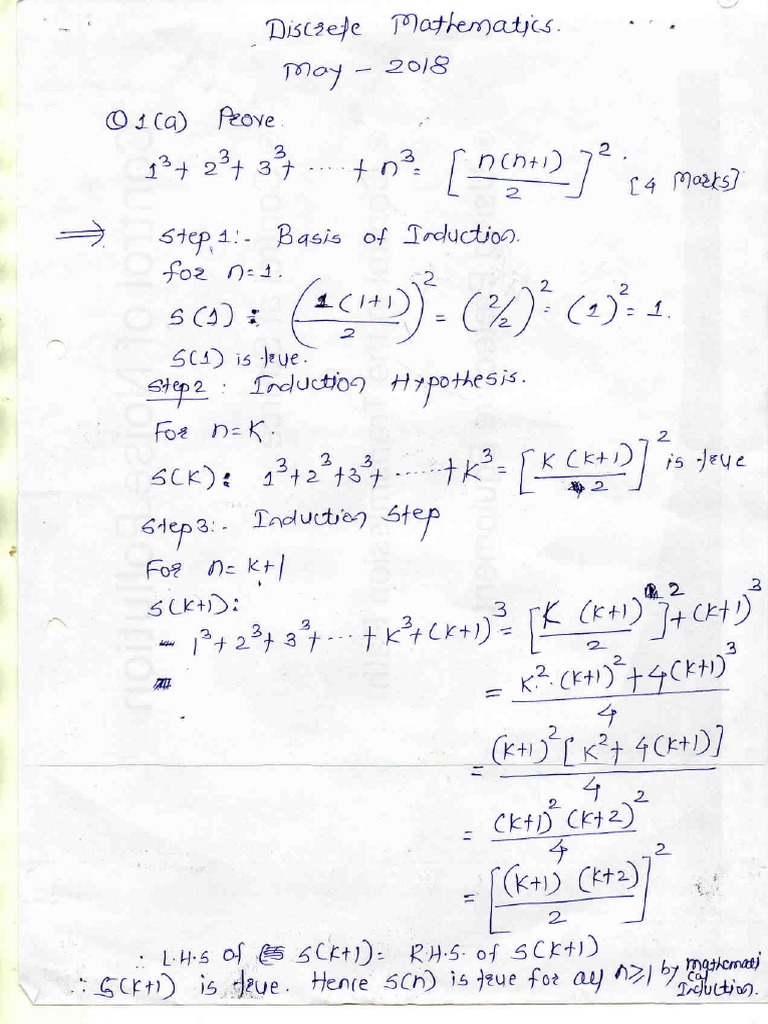 Discrete Mathematics.
May - 2018
Q1(a) Prove.
1³ + 2³ + 3³ + ..... + n³ = [n(n+1)/2]². [4 Marks]
⇒ Step 1:- Basis of Induction.
for n=1.
S(1) : (1(1+1)/2)² = (2/2)² = (1)² = 1.
S(1) is true.
Step2 : Induction Hypothesis.
For n=K.
S(K): 1³+2³+3³+ ......+K³ = [K(K+1)/2]² is true
Step3:- Induction Step
For n= K+1
S(K+1):
1³+2³+3³+ ... + K³+(K+1)³ = [K (K+1)²/2]+(K+1)³
= K².(K+1)²+4(K+1)³/4
= (K+1)²[K²+4(K+1)]/4
= (K+1)²(K+2)²/4
= [(K+1) (K+2)/2]²
∴ L.H.S of S(K+1)= R.H.S. of S(K+1)
∴ S(K+1) is true. Hence S(n) is true for all n≥1 by Mathematical Induction.